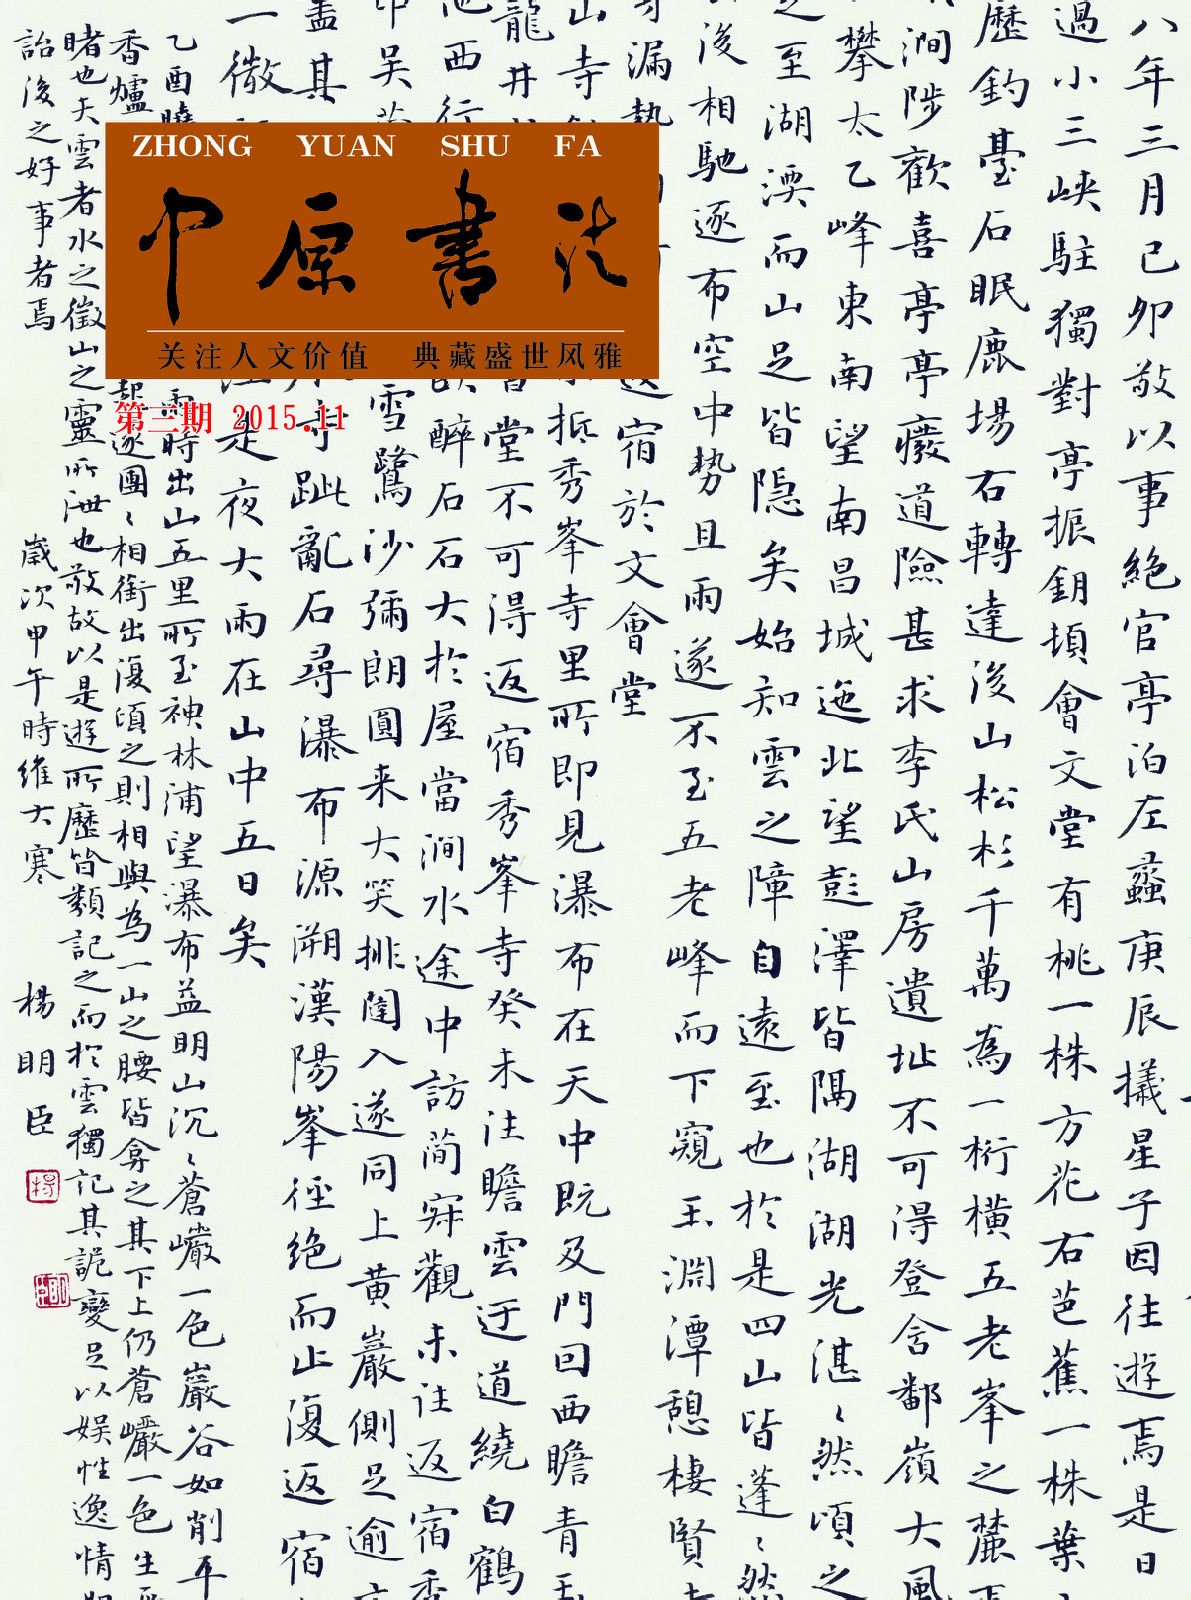 ZHONG YUAN SHU FA
中原書法
关注人文价值 典藏盛世风雅
第三期 2015.11
八年三月己卯敬以事絶官亭泊左蠡庚辰檥星子因往遊焉是日
過小三峽駐獨對亭振鈅頓會文堂有桃一株方花右芭蕉一株葉
歷釣臺石眠鹿場右轉達後山松杉千萬為一桁横五老峯之麓焉
澗陟歡喜亭亭癈道險甚求李氏山房遺址不可得登含鄱嶺大風
攀太乙峰東南望南昌城迤北望彭澤皆隅湖湖光湛〻然頃之
之至湖渜而山足皆隱矣始知雲之障自遠至也於是四山皆蓬〻然
後相馳逐布空中勢且雨遂不至五老峰而下窺玉淵潭憩棲賢寺
漏勢 返宿於文會堂
山寺 抵秀峯寺里所即見瀑布在天中既及門因西瞻青玉
龍井 堂不可得返宿秀峯寺癸未往瞻雲迂道繞白鶴
池西行 醉石石大於屋當澗水途中訪簡寂觀未往返宿秀
吴 雪鷺沙彌朗圓来大笑排闥入遂同上黄巖側足逾
盡其 趾亂石尋瀑布源溯漢陽峯徑絶而止復返宿
一微 走夜大雨在山中五日矣
乙酉曉 雨時出山五里所至神林浦望瀑布益明山沉〻蒼巘一色巖谷如削平
香爐 遂團〻相銜出復頃之則相與為一山之腰皆弇之其下上仍蒼巘一色生
睹也夫雲者水之徵山之靈所洩也敬故以是遊所歷皆類記之而於雲獨記其詭變足以娱性逸情
詒後之好事者焉 歲次甲午時維大寒 楊明臣